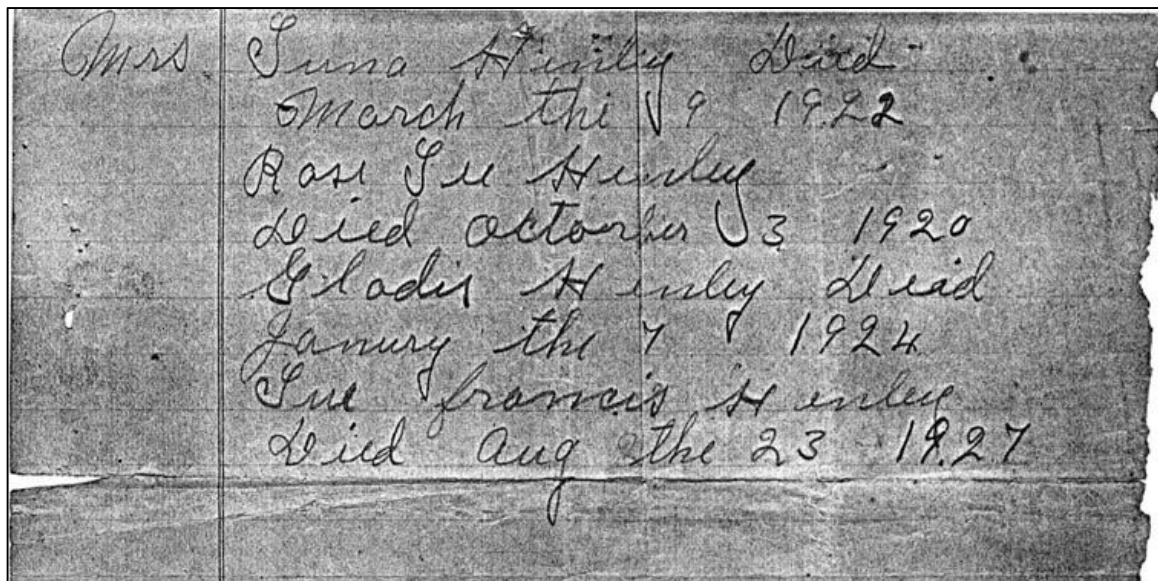 Mrs Luna Henley Died
March the 9 1922
Rose Lee Henley
Died October 3 1920
Gladis Henley Died
Janury the 7 1924
Lue francis Henley
Died Aug the 23 1927